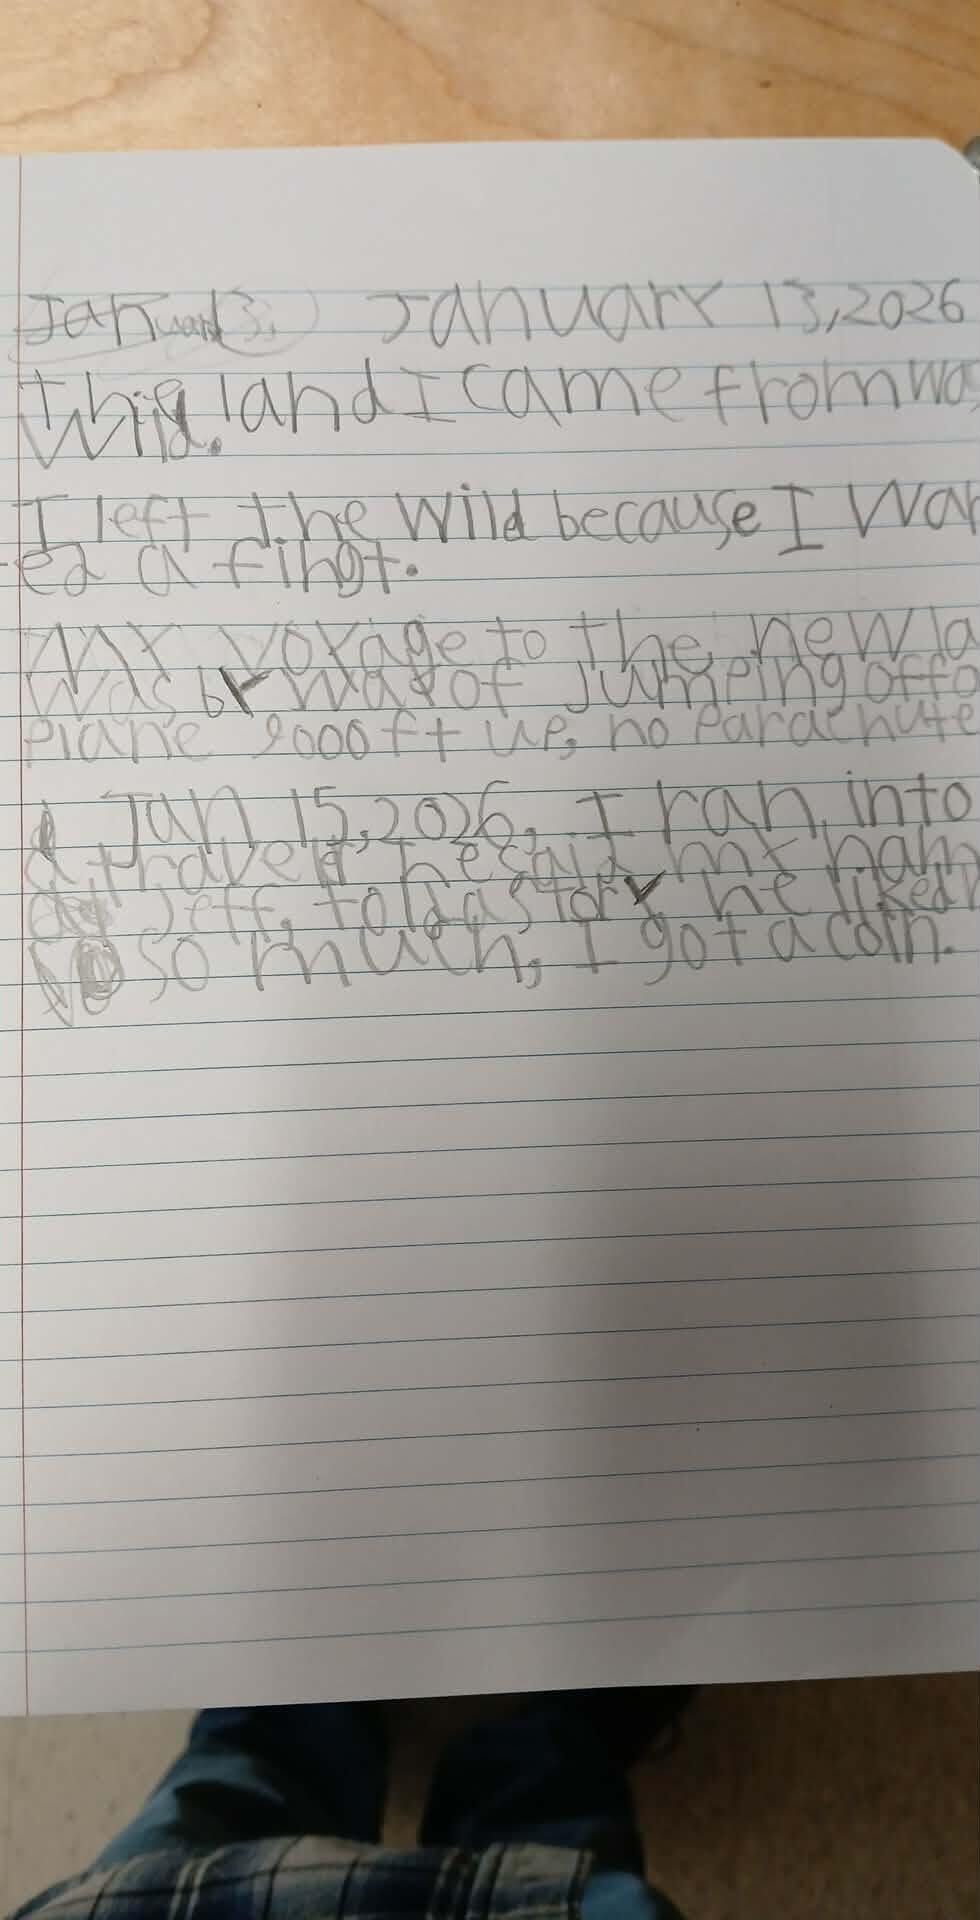 January 13, 2026
this land I came from wa
Wild.
I left the Wild because I Wan
ed a fihgt.
My voyage to the new la
was by way of Jumping off a
plane 9000 ft up, no parachute
Jan 15, 2026, I ran into
a travel he said my nam
Jeff, told a story he liked i
so much, I got a coin.